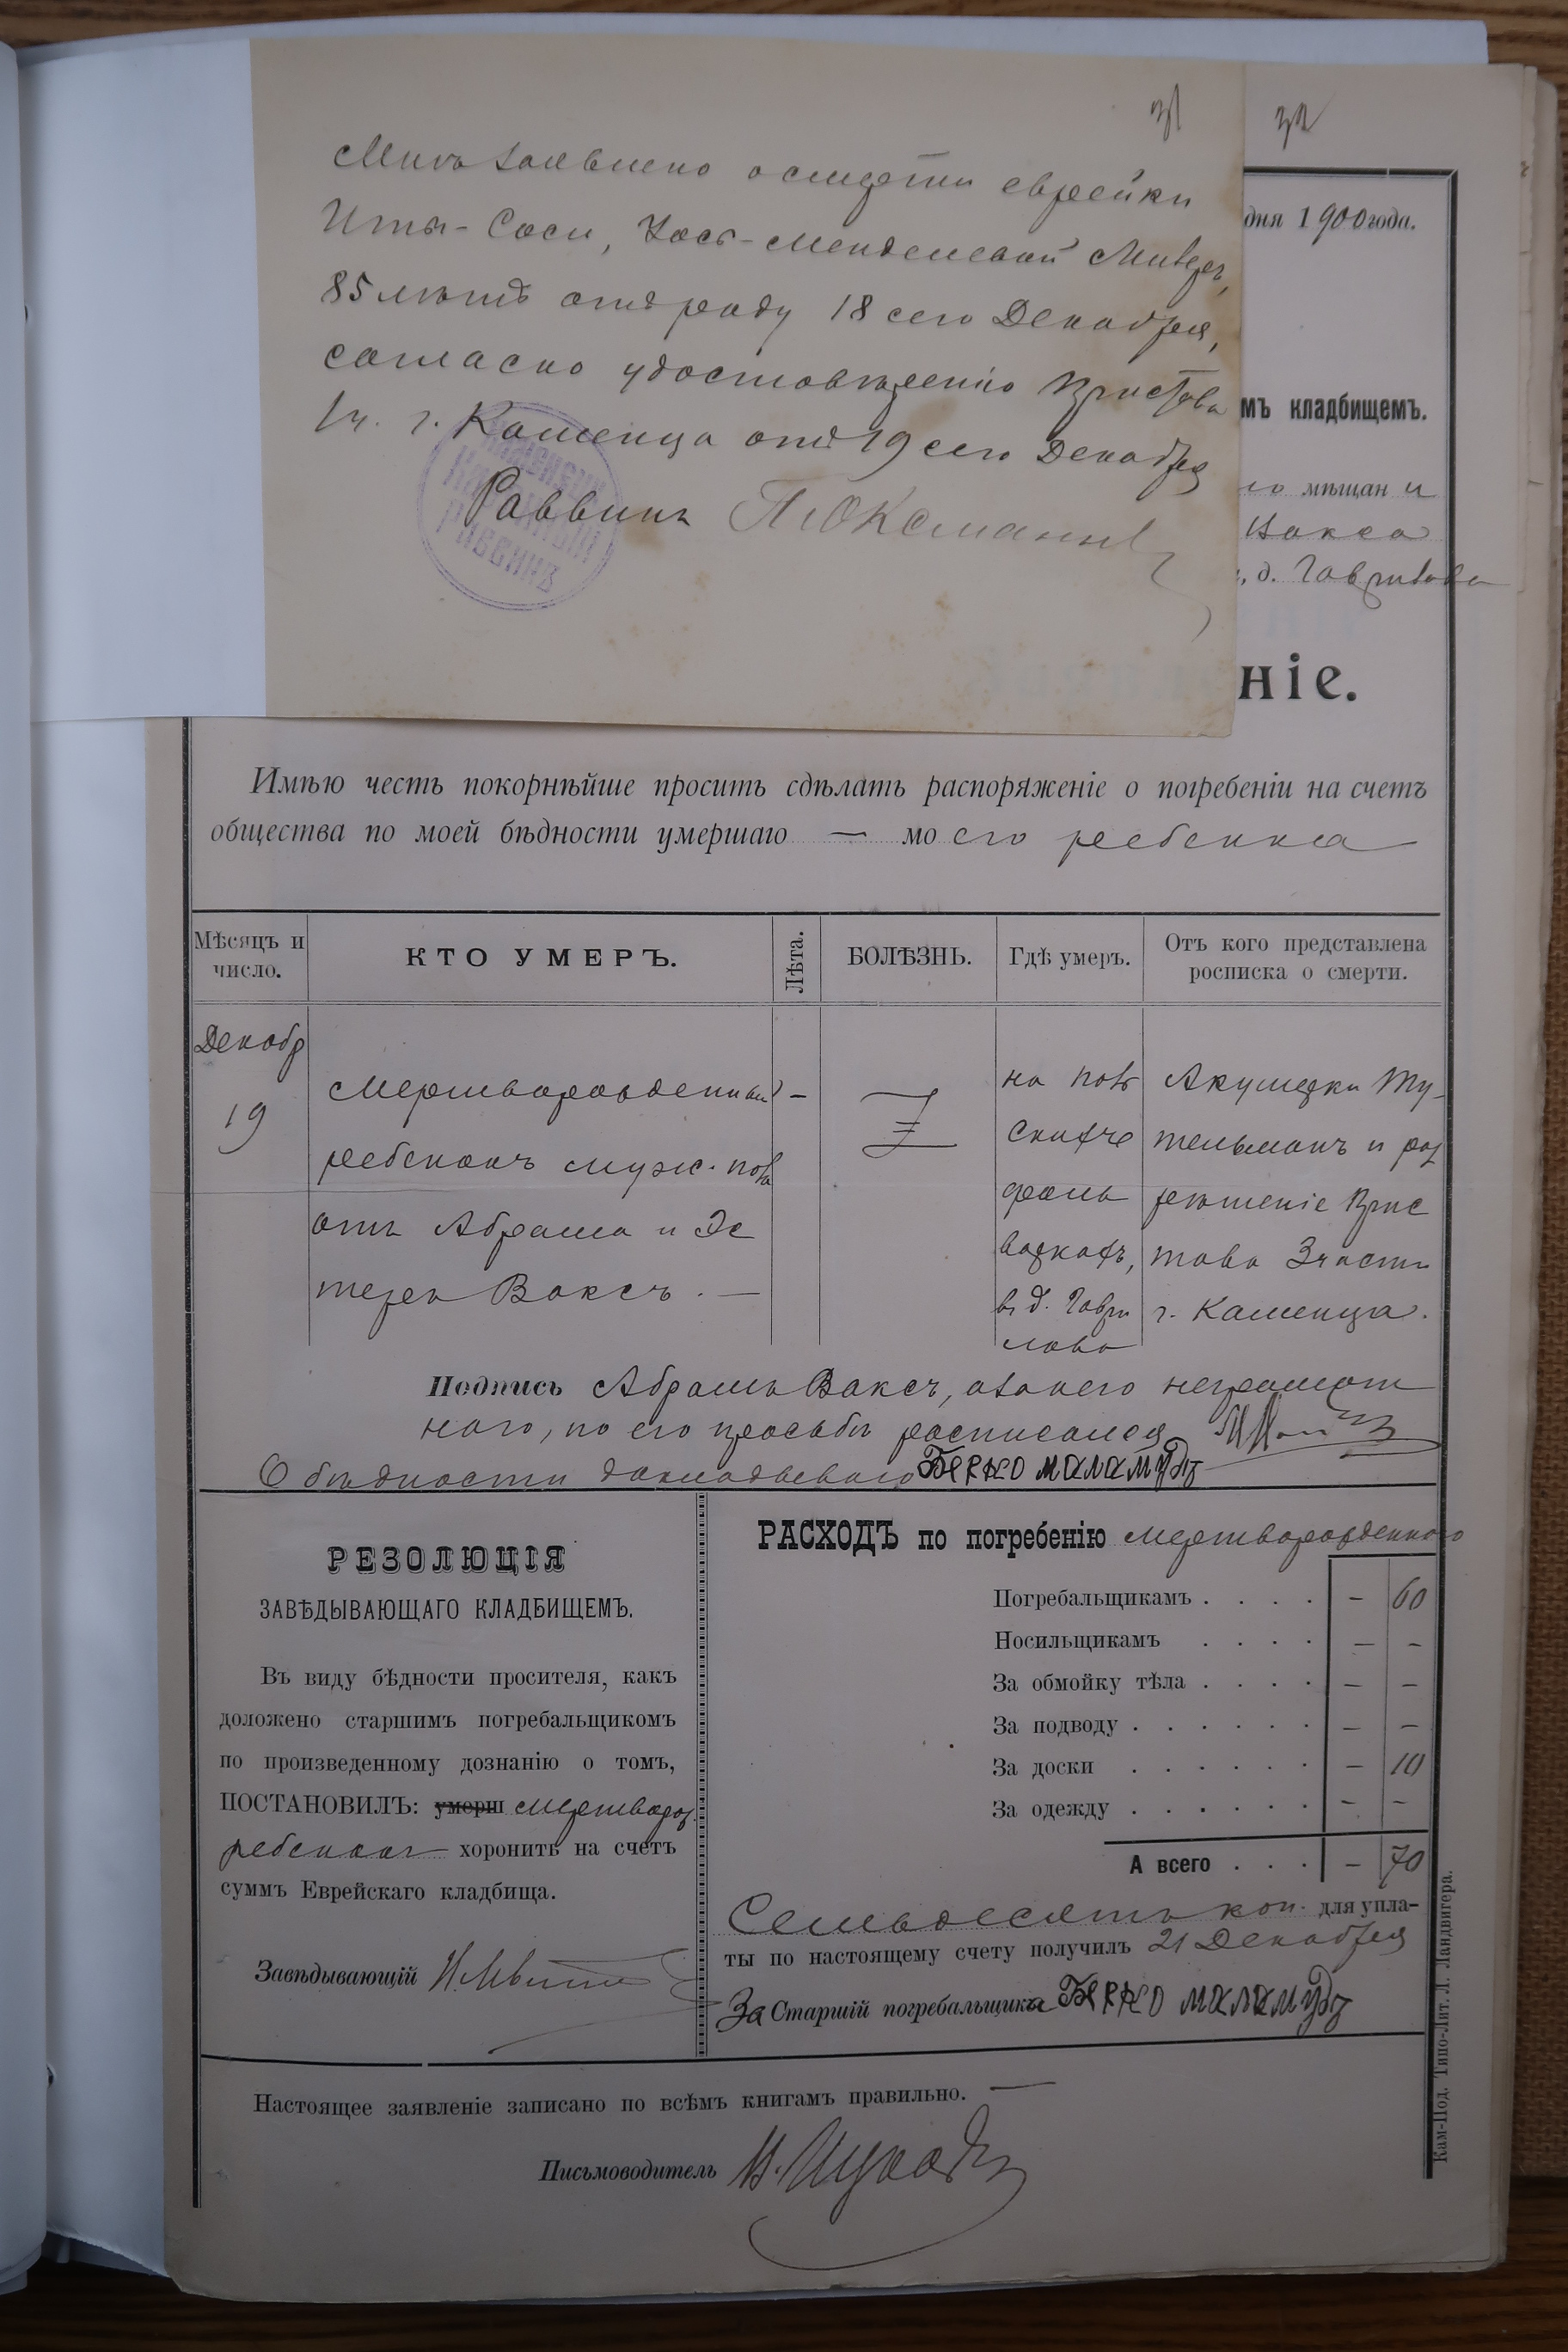 31
32
Мнѣ заявлено о смерти еврейки
Иты-Соси, Іось-Менделевой
85 лѣтъ отъ роду 18 сего Декабря,
согласно удостовѣренію Пристава
1 ч. г. Каменца отъ 19 сего Декабря
Раввинъ
Раввинъ
дня 1900 года.
мъ кладбищемъ.
го мѣщанин
Вакса
, д. Гаврилова
ніе.
Имѣю честь покорнѣйше просить сдѣлать распоряженіе о погребеніи на счетъ
общества по моей бѣдности умершаго — моего ребенка
Мѣсяцъ и число.
КТО УМЕРЪ.
Лѣта.
БОЛѢЗНЬ.
Гдѣ умеръ.
Отъ кого представлена росписка о смерти.
Декабр
19
Мертворожденный
ребенокъ муж. пола
отъ Абрама и Эс
тери Ваксъ. —
–
на поль
скихъ
фоль
варкахъ,
въ д. Гаври
лова
Акушерки Ту-
тельманъ и раз
рѣшеніе Прис
това 3 части
г. Каменца.
Подпись Абрамъ Ваксъ, а за него неграмот
ного, по его просьбѣ росписался
О бѣдности докладывалъ Берко маламудъ
РЕЗОЛЮЦІЯ
ЗАВѢДЫВАЮЩАГО КЛАДБИЩЕМЪ.
Въ виду бѣдности просителя, какъ
доложено старшимъ погребальщикомъ
по произведенному дознанію о томъ,
ПОСТАНОВИЛЪ: умерш мертворож.
ребенокъ хоронить на счетъ
суммъ Еврейскаго кладбища.
Завѣдывающій
РАСХОДЪ по погребенію мертворожденного
Погребальщикамъ . . . . – 60
Носильщикамъ . . . . – –
За обмойку тѣла . . . . – –
За подводу . . . . . . – –
За доски . . . . . . – 10
За одежду . . . . . . – –
А всего . . . – 70
Семьдесятъ коп. для упла-
ты по настоящему счету получилъ 21 Декабря
За Старшій погребальщика Берко маламудъ
Настоящее заявленіе записано по всѣмъ книгамъ правильно. —
Письмоводитель
Кам-Под. Типо-Лит. Л. Ландвигера.